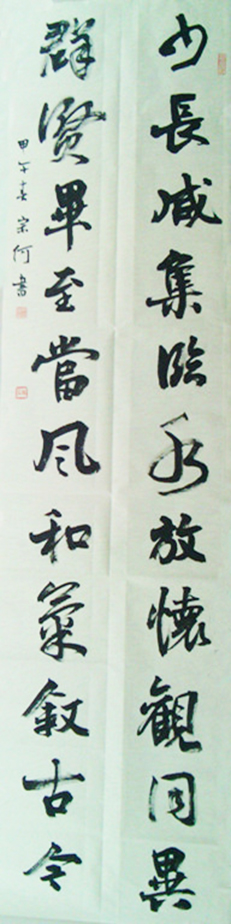 少長咸集臨水放懷觀同異
群賢畢至當風和氣叙古今
甲午春宗何書